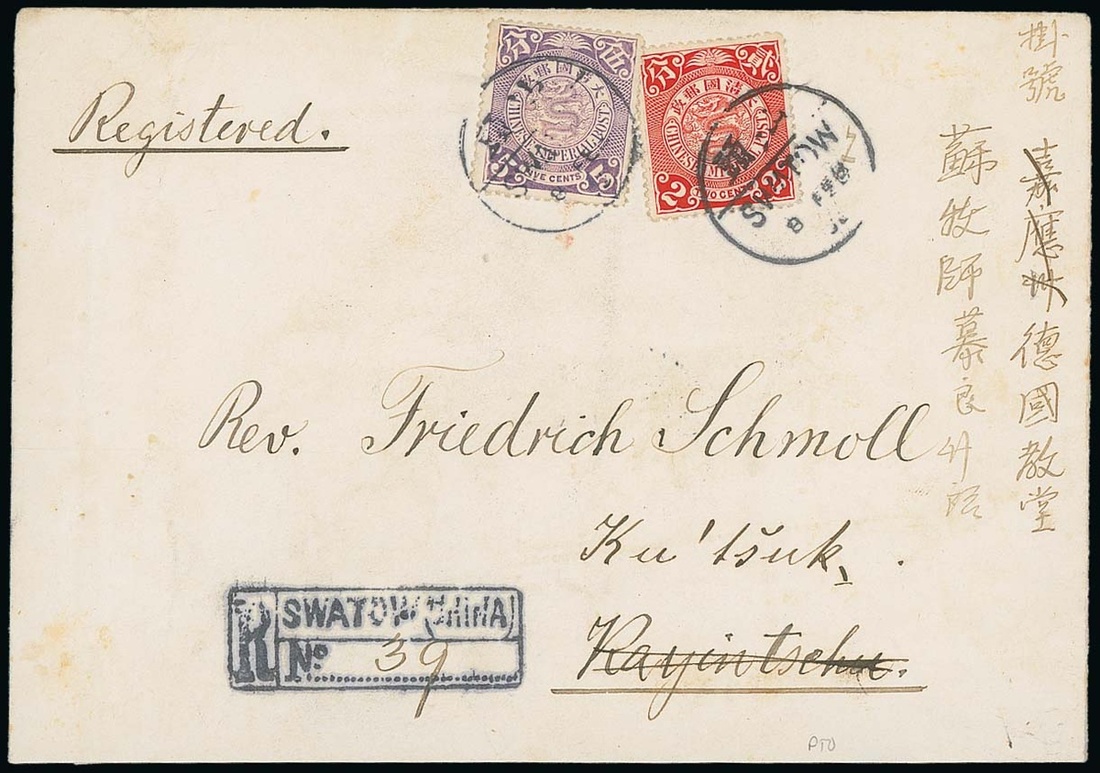 Registered.
伍分
大清國郵政
CHINESE IMPERIAL POST
FIVE CENTS
5
貳分
大清國郵政
CHINESE IMPERIAL POST
2
TWO CENTS
2
8 FEB
掛號
嘉應州德國教堂
蘇牧師慕良升啓
Rev. Friedrich Schmoll
Ku'tšuk.
Kayintschu.
R SWATOW (CHINA)
No 39
PTO